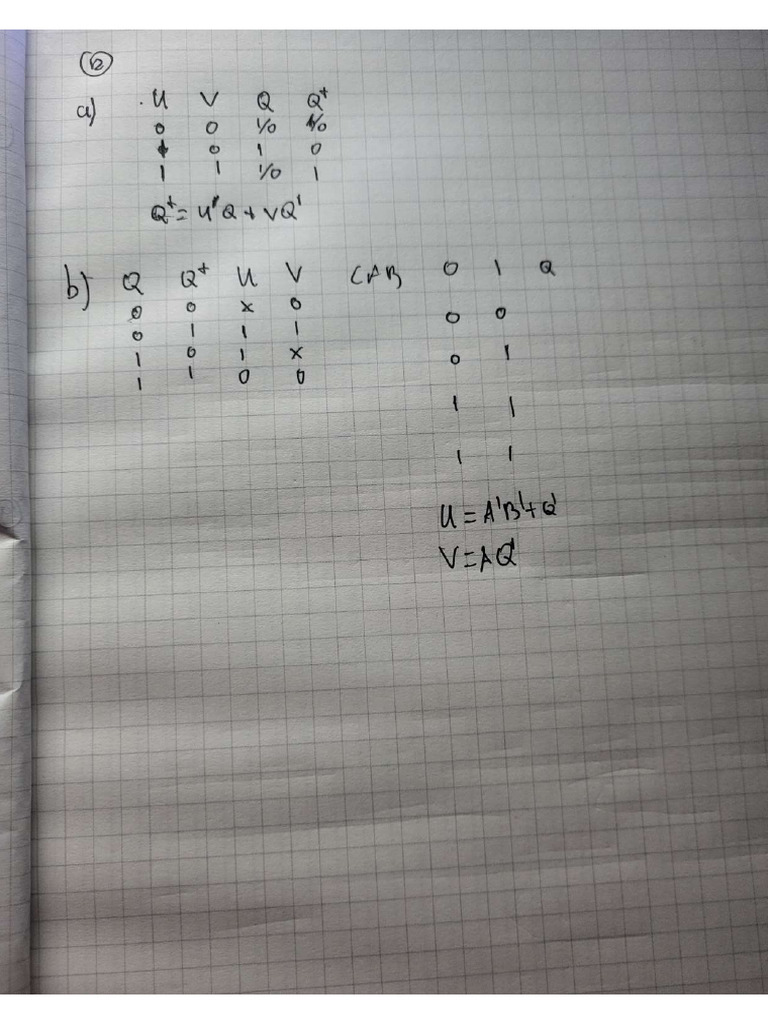 12
a) U V Q Q⁺
0 0 1/0 1/0
1 0 1 0
1 1 1/0 1
Q⁺ = U'Q + VQ'
b) Q Q⁺ U V CAB 0 1 Q
0 0 x 0 0 0
0 1 1 1 0 1
1 0 1 x 1 1
1 1 0 0 1 1
U = A'B' + Q'
V = AQ'